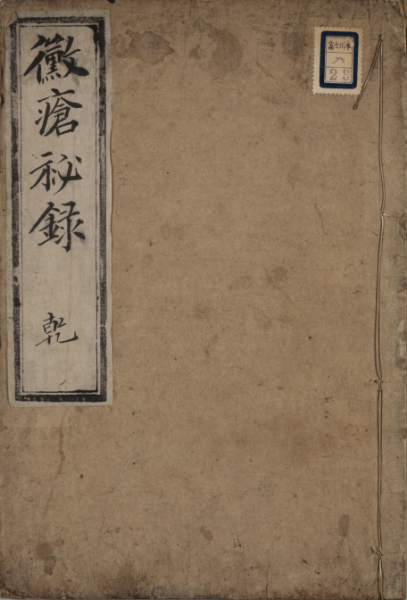 黴瘡秘録
乾
富士川本
ハ
23